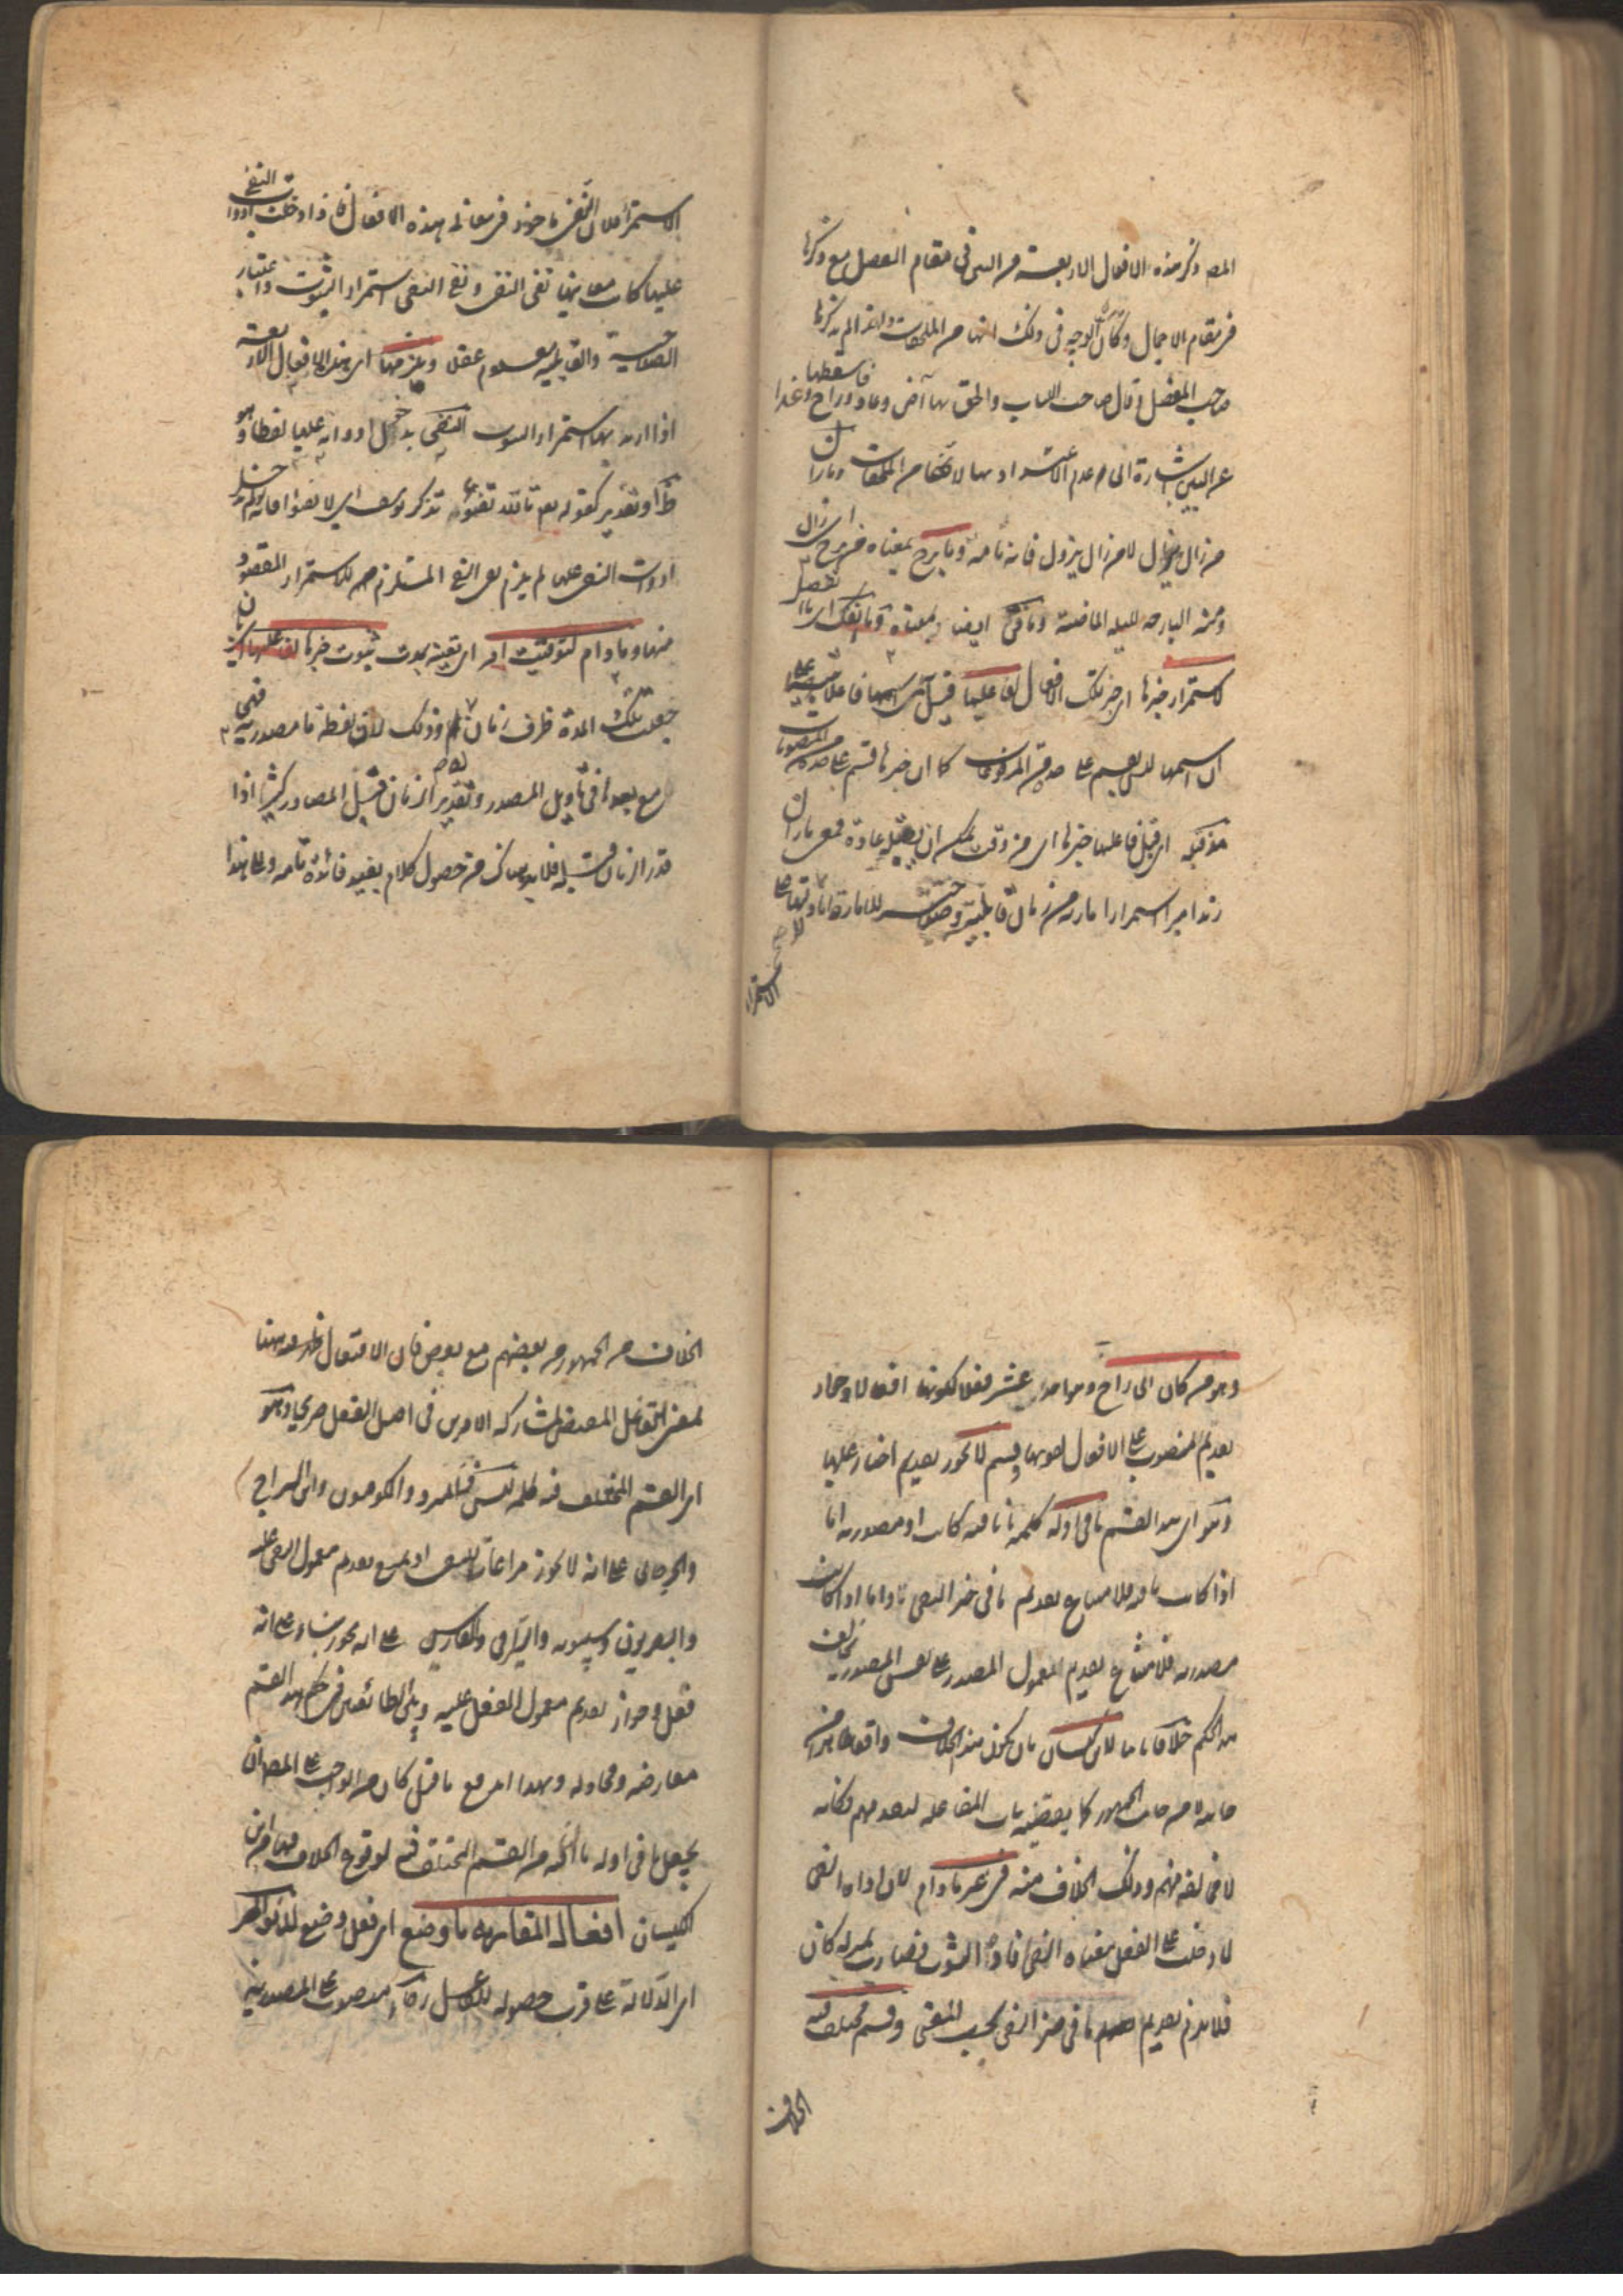 المص ذكر هذه الافعال الاربعة من البين في مقام التفصيل مع ذكرها
في مقام الاجمال وكأن الوجه في ذلك انها من الملحقات ولهذا لم يذكرها
صاحب المفصل وقال صاحب اللباب والحق بها آض وعاد وراح وغدا فاسقطها
عن البين اشارة الى عدم الاعتداد بها لانها من الملحقات وما زال
من زال يزال لا من زال يزول فانه تامة وما برح بمعناه من برح اى زال
ومنه البارحة لليلة الماضية وما فتئ ايضا بمعناه وما انفك اى ما انفصل
لاستمرار خبرها اى خبر تلك الافعال لفاعلها قيل سمى اسمها فاعلا تنبيها على
ان اسمها ليس بقسم على حدة من المرفوعات كما ان خبرها قسم على حدة من المنصوبات
مذ قبله اى قبل فاعلها خبرها اى من وقت يمكن ان يقبله عادة فمعنى ما زال
زيد اميرا استمرار امارته من زمان قابليته وصلاحيته للامارة
الاستمرار
الاستمرار لان النفي مأخوذ في معاني هذه الافعال فاذا دخلت ادوات النفي
عليها كانت معانيها نفى النفى ونفى النفى استمرار الثبوت واعتبار
الصلاحية والقابلية معلوم عقلا ويلزمها اى هذه الافعال الاربعة
اذا اريد بها استمرار الثبوت النفى بدخول ادواته عليها لفظا وهو
ظ او تقديرا كقوله تع تالله تفتؤ تذكر يوسف اى لا تفتؤ فانه لو لم يدخل
ادوات النفى عليها لم يلزم نفى النفى المستلزم للاستمرار المقصود
منها وما دام لتوقيت امر اى تعيينه بمدة ثبوت خبرها لفاعلها بان
جعلت تلك المدة ظرف زمان له وذلك لان لفظة ما مصدرية فهى
مع ما بعدها في تأويل المصدر وتقدير الزمان قبل المصادر كثير اذا
قدر الزمان قبله فلا بد هناك من حصول كلام يفيد فائدة تامة ولهذا
وهو من كان الى راح وهو احد عشر فعلا لكونها افعالا وجواز
تقديم المنصوب على الافعال لقوتها وقسم لا يجوز تقديم اخبار عليها
وهو اى هذا القسم ما في اوله كلمة ما نافية كانت او مصدرية اما
اذا كانت نافية فلامتناع تقديم ما في حيز النفى واما اذا كانت
مصدرية فلامتناع تقديم المعمول المصدر على نفس المصدر يخالف
هذا الحكم خلافا ثابتا لابن كيسان بان يكون هذا الخلاف واقعا ظاهرا من
جانبه من جانب الجمهور كما يقتضيه باب المفاعلة لتقدمهم فكانه
لا مخالفة منهم وذلك الخلاف منه في غير ما دام لان اداة النفى
لما دخلت على الفعل معناه النفى افادت الثبوت فصارت بمنزلة كان
فلا يلزم تقديم ما في حيز النفى بحسب المعنى وقسم مختلف فيه
الخلاف
الخلاف من الجمهور من بعضهم مع بعض فان الافتعال ههنا
بمعنى التفاعل المقتضى لمشاركة الامرين في اصل الفعل صريحا وهو
اى القسم المختلف فيه كلمة ليس فالمبرد والكوفيون وابن السراج
والجرجاني على انه لا يجوز مراعاة للنفى اذ يمتنع تقديم معمول النفى عليه
والبصريون وسيبويه والسيرافى والفارسى على انه يجوز بناء على انه
فعل وجواز تقديم معمول الفعل عليه وبين الطائفتين في حكم هذا القسم
معارضة ومجادلة وبهذا اندفع ما قيل كان من الواجب على المص ان
يجعل ما في اوله ما النافية من القسم المختلف فيه لوقوع الخلاف فيها من ابن
كيسان افعال المقاربة ما وضع اى فعل وضع لدنو الخبر
اى الدلالة على قرب حصوله للفاعل رجاء منصوب على المصدرية